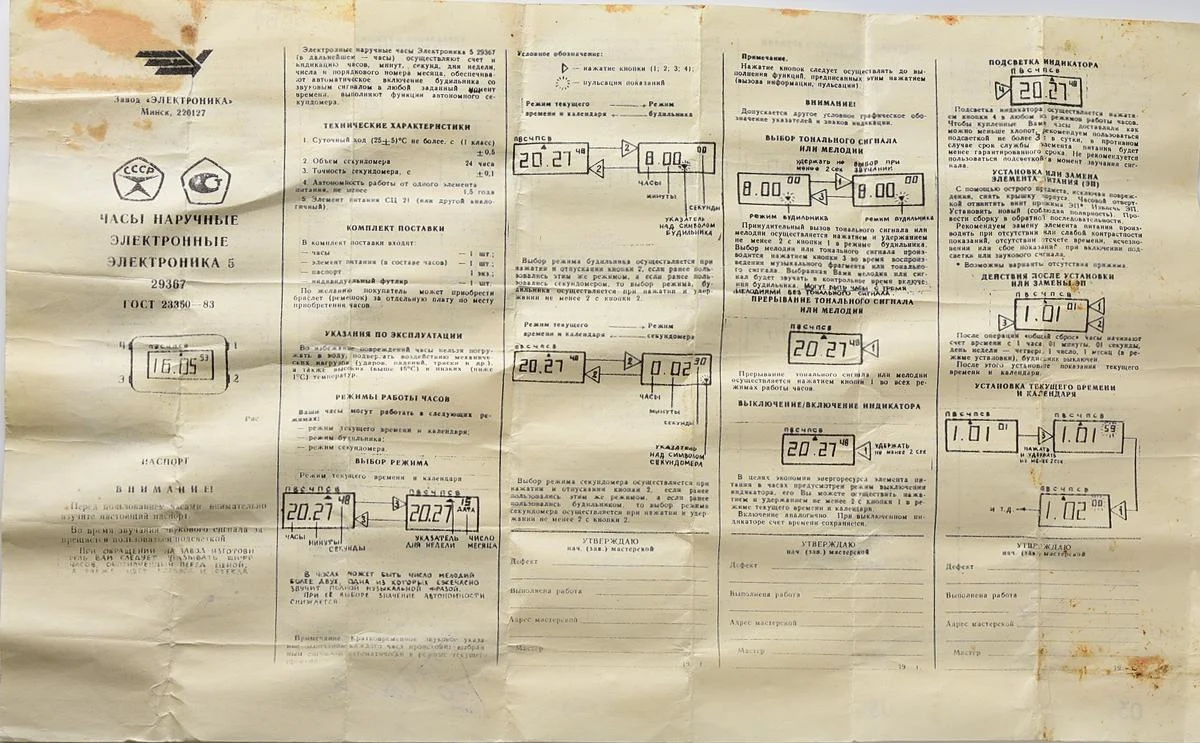 Завод «ЭЛЕКТРОНИКА»
Минск, 220127
СССР
ЧАСЫ НАРУЧНЫЕ
ЭЛЕКТРОННЫЕ
ЭЛЕКТРОНИКА 5
29367
ГОСТ 23350—83
4
1
ПВСЧПСВ
16:05 53
3
2
Рис
ПАСПОРТ
ВНИМАНИЕ!
Перед пользованием часами внимательно
изучите настоящий паспорт.
Во время звучания звукового сигнала за-
прещается пользоваться подсветкой
ПРИ ОБРАЩЕНИИ НА ЗАВОД ИЗГОТОВИ
ТЕЛЬ ВАМ СЛЕДУЕТ УКАЗЫВАТЬ ШИФР
ЧАСОВ, ОБОЗНАЧЕННЫЙ ПЕРЕД ЦЕНОЙ,
Электронные наручные часы Электроника 5 29367
(в дальнейшем — часы) осуществляют счет и
индикацию часов, минут, секунд, дня недели,
числа и порядкового номера месяца, обеспечива-
ют автоматическое включение будильника со
звуковым сигналом в любой заданный момент
времени, выполняют функции автономного се-
кундомера.
ТЕХНИЧЕСКИЕ ХАРАКТЕРИСТИКИ
1. Суточный ход (25±5)°С не более, с (1 класс)
±0,5
2. Объем секундомера 24 часа
3. Точность секундомера, с ±0,1
4. Автономность работы от одного элемента
питания, не менее 1,5 года
5. Элемент питания СЦ 21 (или другой анало-
гичный).
КОМПЛЕКТ ПОСТАВКИ
В комплект поставки входят:
— часы — 1 шт.;
— элемент питания (в составе часов) — 1 шт.;
— паспорт — 1 экз.;
— индивидуальный футляр — 1 шт.
По желанию покупатель может приобрести
браслет (ремешок) за отдельную плату по месту
приобретения часов.
УКАЗАНИЯ ПО ЭКСПЛУАТАЦИИ
Во избежание повреждений часы нельзя погру-
жать в воду, подвергать воздействию механиче-
ских нагрузок (ударов, падений, тряски и др.),
а также высоких (выше 45°С) и низких (ниже
1°С) температур.
РЕЖИМЫ РАБОТЫ ЧАСОВ
Ваши часы могут работать в следующих ре-
жимах:
— режим текущего времени и календаря;
— режим будильника;
— режим секундомера.
ВЫБОР РЕЖИМА
Режим текущего времени и календаря
ПВСЧПСВ ПВСЧПСВ
20.27 48 3 3 20.27 15
ДАТА
ЧАСЫ
МИНУТЫ
СЕКУНДЫ
УКАЗАТЕЛЬ
ДНЯ НЕДЕЛИ
ЧИСЛО
МЕСЯЦА
В ЧАСАХ МОЖЕТ БЫТЬ ЧИСЛО МЕЛОДИЙ
БОЛЕЕ ДВУХ, ОДНА ИЗ КОТОРЫХ ЕЖЕЧАСНО
ЗВУЧИТ ПОЛНОЙ МУЗЫКАЛЬНОЙ ФРАЗОЙ.
ПРИ ЕЁ ВЫБОРЕ ЗНАЧЕНИЕ АВТОНОМНОСТИ
СНИЖАЕТСЯ
Примечание. Кратковременное звуковое указа-
Условное обозначение:
— нажатие кнопки (1; 2; 3; 4);
— пульсация показаний
Режим текущего Режим
времени и календаря будильника
ПВСЧПСВ
20.27 48 2 2 8.00 00
ЧАСЫ
МИНУТЫ
СЕКУНДЫ
УКАЗАТЕЛЬ
НАД СИМВОЛОМ
БУДИЛЬНИКА
Выбор режима будильника осуществляется при
нажатии и отпускании кнопки 2, если ранее поль-
зовались этим же режимом, а если ранее поль-
зовались секундомером, то выбор режима, бу-
дильника осуществляется при нажатии и удер-
жании не менее 2 с кнопки 2.
Режим текущего Режим
времени и календаря секундомера
ПВСЧПСВ
20.27 48 2 2 0.02 30
ЧАСЫ
МИНУТЫ
СЕКУНДЫ
УКАЗАТЕЛЬ
НАД СИМВОЛОМ
СЕКУНДОМЕРА
Выбор режима секундомера осуществляется при
нажатии и отпускании кнопки 2, если ранее
пользовались этим же режимом, а если ранее
пользовались будильником, то выбор режима
секундомера осуществляется при нажатии и удер-
жании не менее 2 с кнопки 2.
УТВЕРЖДАЮ
нач. (зав.) мастерской
Дефект
Выполнена работа
Адрес мастерской
Мастер
19 г.
Примечание.
Нажатие кнопок следует осуществлять до вы-
полнения функций, предписанных этим нажатием
(вызова информации, пульсации).
ВНИМАНИЕ!
Допускается другое условное графическое обо-
значение указателей и знаков индикации.
ВЫБОР ТОНАЛЬНОГО СИГНАЛА
ИЛИ МЕЛОДИИ
УДЕРЖАТЬ НЕ
МЕНЕЕ 2 СЕК
ВЫБОР ПРИ
ЗВУЧАНИИ
8.00 00 1 3 8.00 00
Режим будильника Режим будильника
Принудительный вызов тонального сигнала или
мелодии осуществляется нажатием и удержанием
не менее 2 с кнопки 1 в режиме будильника.
Выбор мелодии или тонального сигнала произ-
водится нажатием кнопки 3 во время воспроиз-
ведения музыкального фрагмента или тонально-
го сигнала. Выбранная Вами мелодия или сиг-
нал будет звучать в контрольное время включе-
ния будильника. МОГУТ БЫТЬ ЧАСЫ С ТРЕМЯ
МЕЛОДИЯМИ БЕЗ ТОНАЛЬНОГО СИГНАЛА.
ПРЕРЫВАНИЕ ТОНАЛЬНОГО СИГНАЛА
ИЛИ МЕЛОДИИ
ПВСЧПСВ
20.27 48 1
Прерывание тонального сигнала или мелодии
осуществляется нажатием кнопки 1 во всех ре-
жимах работы часов.
ВЫКЛЮЧЕНИЕ/ВКЛЮЧЕНИЕ ИНДИКАТОРА
ПВСЧПСВ
20.27 48 1
УДЕРЖАТЬ
НЕ МЕНЕЕ 2 СЕК
В целях экономии энергоресурса элемента пи-
тания в часах предусмотрен режим выключения
индикатора, его Вы можете осуществить нажа-
тием и удержанием не менее 2 с кнопки 1 в ре-
жиме текущего времени и календаря.
Включение аналогично. При выключенном ин-
дикаторе счет времени сохраняется.
УТВЕРЖДАЮ
нач. (зав.) мастерской
Дефект
Выполнена работа
Адрес мастерской
Мастер
19 г.
ПОДСВЕТКА ИНДИКАТОРА
ПВСЧПСВ
4 20.27 48
Подсветка индикатора осуществляется нажати-
ем кнопки 4 в любом из режимов работы часов.
Чтобы купленные Вами часы доставляли как
можно меньше хлопот, рекомендуем пользоваться
подсветкой не более 3 с в сутки, в противном
случае срок службы элемента питания будет
менее гарантированного срока. Не рекомендуется
пользоваться подсветкой в момент звучания сиг-
нала.
УСТАНОВКА ИЛИ ЗАМЕНА
ЭЛЕМЕНТА ПИТАНИЯ (ЭП)
С помощью острого предмета, исключая повреж-
дения, снять крышку корпуса. Часовой отверт-
кой отвинтить винт прижима ЭП*. Извлечь ЭП.
Установить новый (соблюдая полярность). Про-
вести сборку в обратной последовательности.
Рекомендуем замену элемента питания произ-
водить при отсутствии или слабой контрастности
показаний, отсутствии отсчета времени, исчезно-
вении или сбое показаний, при включении под-
светки или звукового сигнала.
* Возможны варианты отсутствия прижима.
ДЕЙСТВИЯ ПОСЛЕ УСТАНОВКИ
ИЛИ ЗАМЕНЫ ЭП
ПВСЧПСВ
3 1.01 01 1
2
После операции «общий сброс» часы начинают
счет времени с 1 часа, 01 минуты, 01 секунды,
день недели — четверг, 1 число, 1 месяц (в ре-
жиме установки), будильник выключен.
После этого установите показания текущего
времени и календаря.
УСТАНОВКА ТЕКУЩЕГО ВРЕМЕНИ
И КАЛЕНДАРЯ
ПВСЧПСВ ПВСЧПСВ
1.01 01 3 1.01 59
НАЖАТЬ
И УДЕРЖАТЬ
НЕ МЕНЕЕ 2 СЕК
ПВСЧПСВ
И Т.Д. 1.02 00 1
УТВЕРЖДАЮ
нач. (зав.) мастерской
Дефект
Выполнена работа
Адрес мастерской
Мастер
19